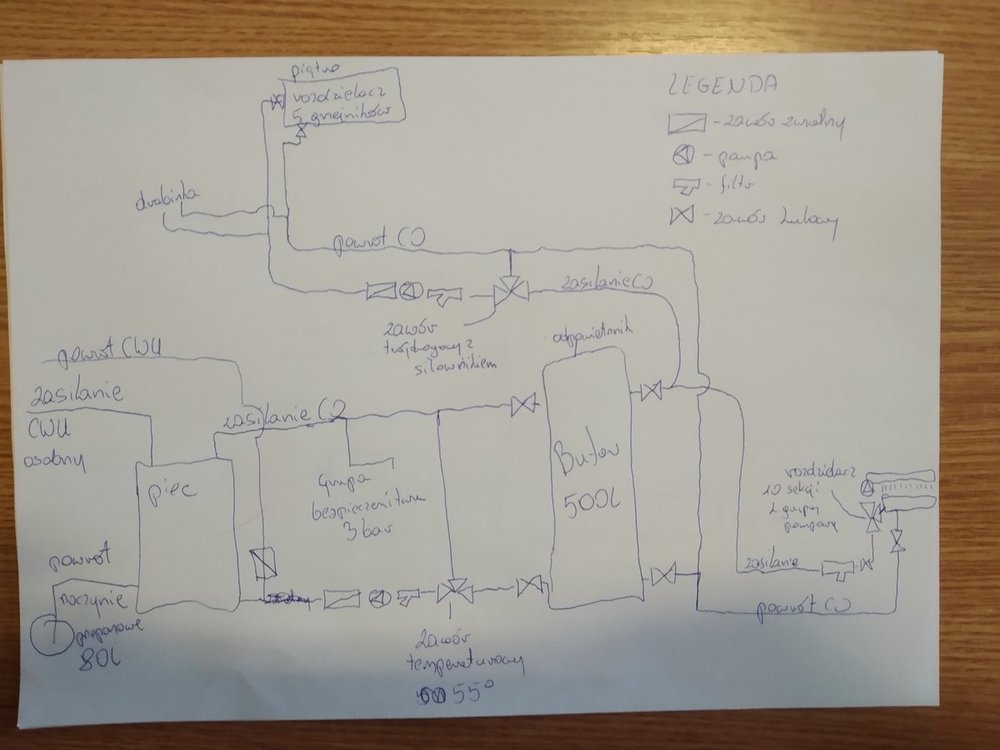 piętro
rozdzielacz
5 grzejników
LEGENDA
- zawór zwrotny
- pompa
- filtr
- zawór kulowy
drabinka
powrót CO
zasilanie CO
zawór
trójdrogowy z
siłownikiem
odpowietrznik
powrót CWU
zasilanie
CWU
osobny
zasilanie CO
piec
Grupa
bezpieczeństwa
3 bar
Bufor
500L
rozdzielacz
10 sekcji
z grupą
pompową
powrót
naczynie
preponowe
80L
zasilanie
powrót CO
zawór
temperaturowy
55°